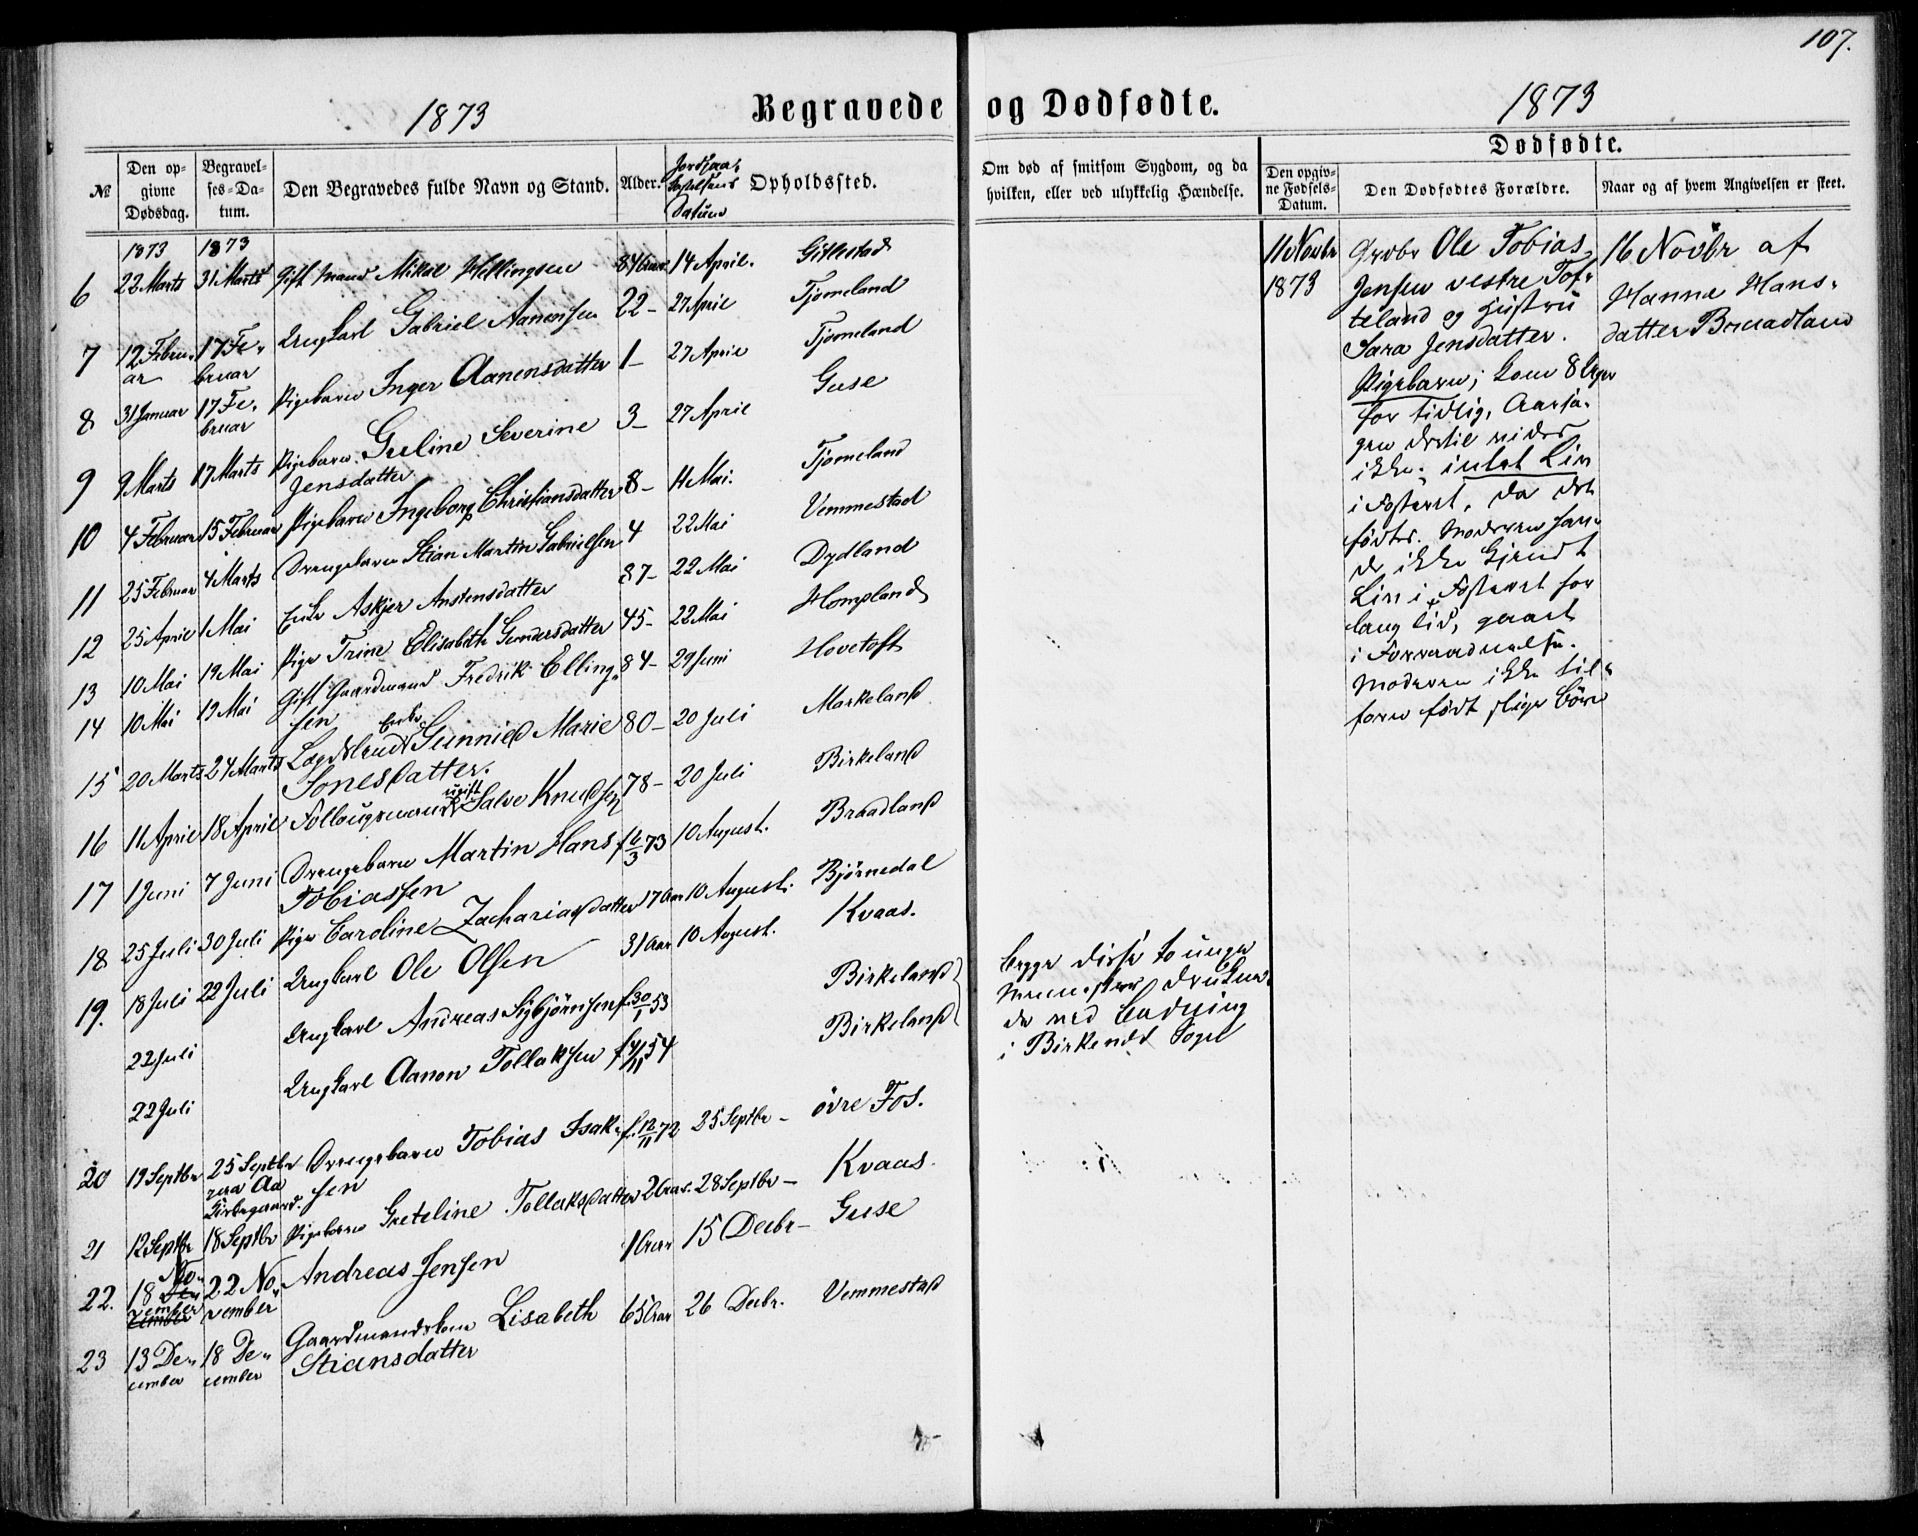 107.
1873 Begravede og Dødfødte. 1873
Dødfødte.
№ Den op- Begravel- Den Begravedes fulde Navn og Stand. Alder. Jordpaa- Opholdssted. Om død af smitsom Sygdom, og da Den opgiv- Den Dødfødtes Forældre. Naar og af hvem Angivelsen er skeet.
givne ses-Da- kastelsens hvilken, eller ved ulykkelig Hændelse. ne Fødsels-
Dødsdag. tum. Datum Datum.
1873 1873
6 22 Marts 31 Marts Gift Mand Mikal Hellingsen 84 Aar 14 April. Gitlestad
7 12 Febru- 17 Fe- Ungkarl Gabriel Aanensen 22 - 27 April Tjomeland
ar bruar
8 31 Januar 17 Fe- Pigebarn Inger Aanensdatter 1 - 27 April Tjomeland
bruar
9 9 Marts 17 Marts Pigebarn Guline Severine 3 - 27 April Guse
Jensdatter
10 4 Februar 15 Februar Pigebarn Ingeborg Christiansdatter 8 - 4 Mai. Tjomeland
11 25 Februar 4 Marts Drengebarn Stian Martin Gabrielsen 4 22 Mai Vemmestad
12 25 April 1 Mai Enke Askjer Anstensdatter 87 - 22 Mai Dydland
13 10 Mai 19 Mai Pige Trine Elisabeth Gundersdatter 45 - 22 Mai Hompland
14 10 Mai 19 Mai Gift Gaardmand Fredrik Elling- 84 - 29 Juni Hovetoft
sen
15 20 Marts 24 Marts Lægdslem Enke Gunnild Marie 80 - 20 Juli Markeland
Jonesdatter.
16 11 April 18 April Føllaugsmand ugift Salve Knudsen 78 - 20 Juli Birkeland
17 1 Juni 7 Juni Drengebarn Martin Hans f 6/3 73 10 August. Braadland
Tobiassen
18 25 Juli 30 Juli Pige Caroline Zachariasdatter 17 Aar 10 August. Bjørnedal
19. 18 Juli 22 Juli Ungkarl Ole Olsen 31 Aar 10 August. Kvaas.
22 Juli Ungkarl Andreas Sigbjørnsen f. 30/1 53 Birkeland
22 Juli Ungkarl Aanon Tollaksen f 4/11 54 Birkeland
begge disse to unge
Mennesker druknede
ved Badning
i Birkenes Sogn
20 19 Septbr 25 Septbr Drengebarn Tobias Isak- f. 12/11 72 25 Septbr - øvre Fos.
Kirkegaard. sen
21 12 Septbr 18 Septbr Pigebarn Greteline Tollaksdatter 2 Aar. 28 Septbr - Kvaas.
22. 18 No- 22 No- Andreas Jensen 1 Aar 15 Decbr - Guse
vember vember
23 13 De- 18 De- Gaardmandskone Lisabeth 65 Aar 26 Decbr. Vemmestad
cember cember Stiansdatter
11 Novbr Grdbr Ole Tobias 16 Novbr af
1873 Jensen vestre Tof- Hanna Hans-
teland og Hustru datter Braadland
Sara Jensdatter.
Pigebarn; kom 8 Uger
for tidlig, Aarsa-
gen dertil vides
ikke. intet Liv
i Fosteret, da det
fødtes. Moderen hav-
de ikke kjendt
Liv i Fosteret for
lang Tid,
i Forraadnelse.
Moderen ikke til-
forn født slige Børn